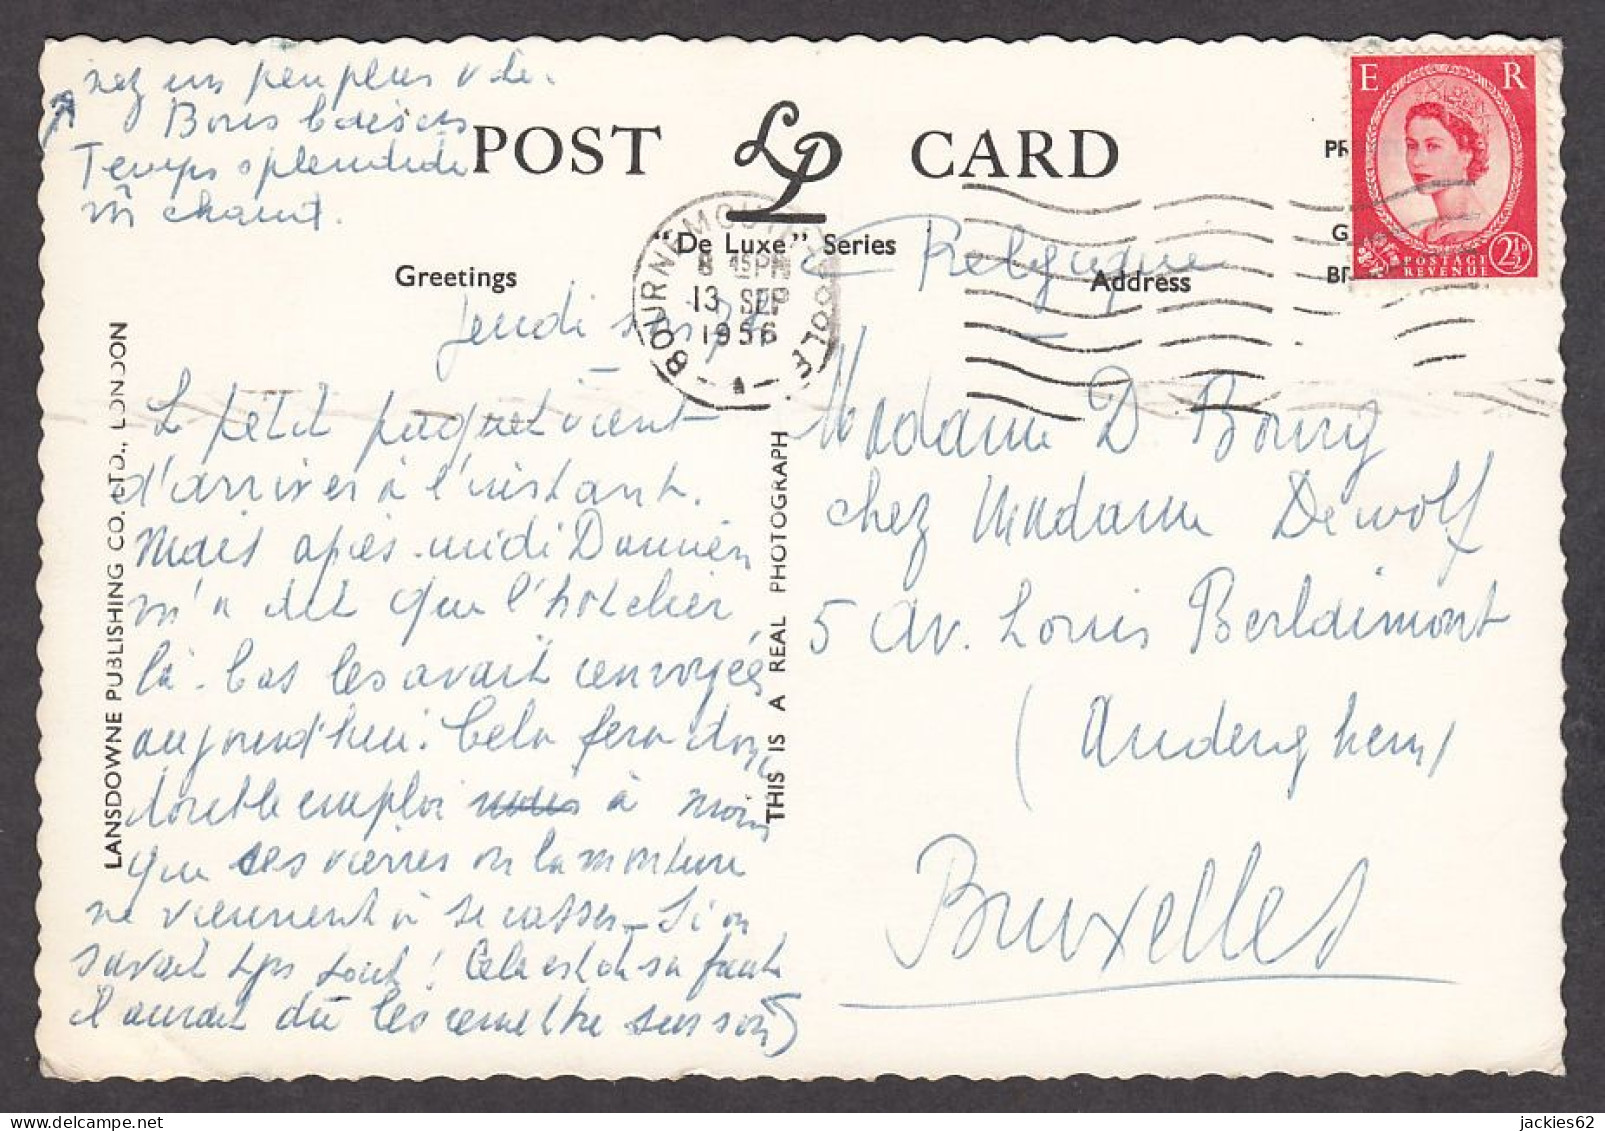 nez un peu plus vite.
Bons baisers
Temps splendide
et chaud.
POST LP CARD
"De Luxe" Series
Greetings
Address
BOURNEMOUTH POOLE
8 45 PM
13 SEP
1956
E R
2½D
POSTAGE
REVENUE
Belgique
Jeudi soir
Le petit paquet vient
d'arriver à l'instant.
Mais après-midi Damien
m'a dit que l'hotelier
là-bas les avait renvoyées
aujourd'hui. Cela fera donc
double emploi à moins
que les verres ou la monture
ne viennent à se casser. Si on
savait tjrs tout! Cela est de sa faute
il aurait dû les remettre sur son
Madame D. Bourg
chez Madame Dewolf
5 av. Louis Berlaimont
(Auderghem)
Bruxelles
LANSDOWNE PUBLISHING CO. LTD., LONDON
THIS IS A REAL PHOTOGRAPH
jackies62